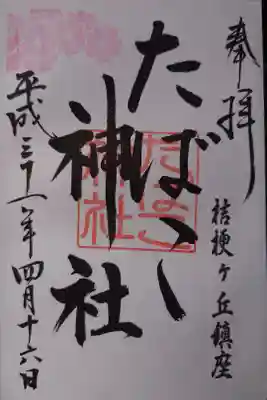 奉拝
桔梗ヶ丘鎮座
たばこ
神社
平成三十一年四月十六日